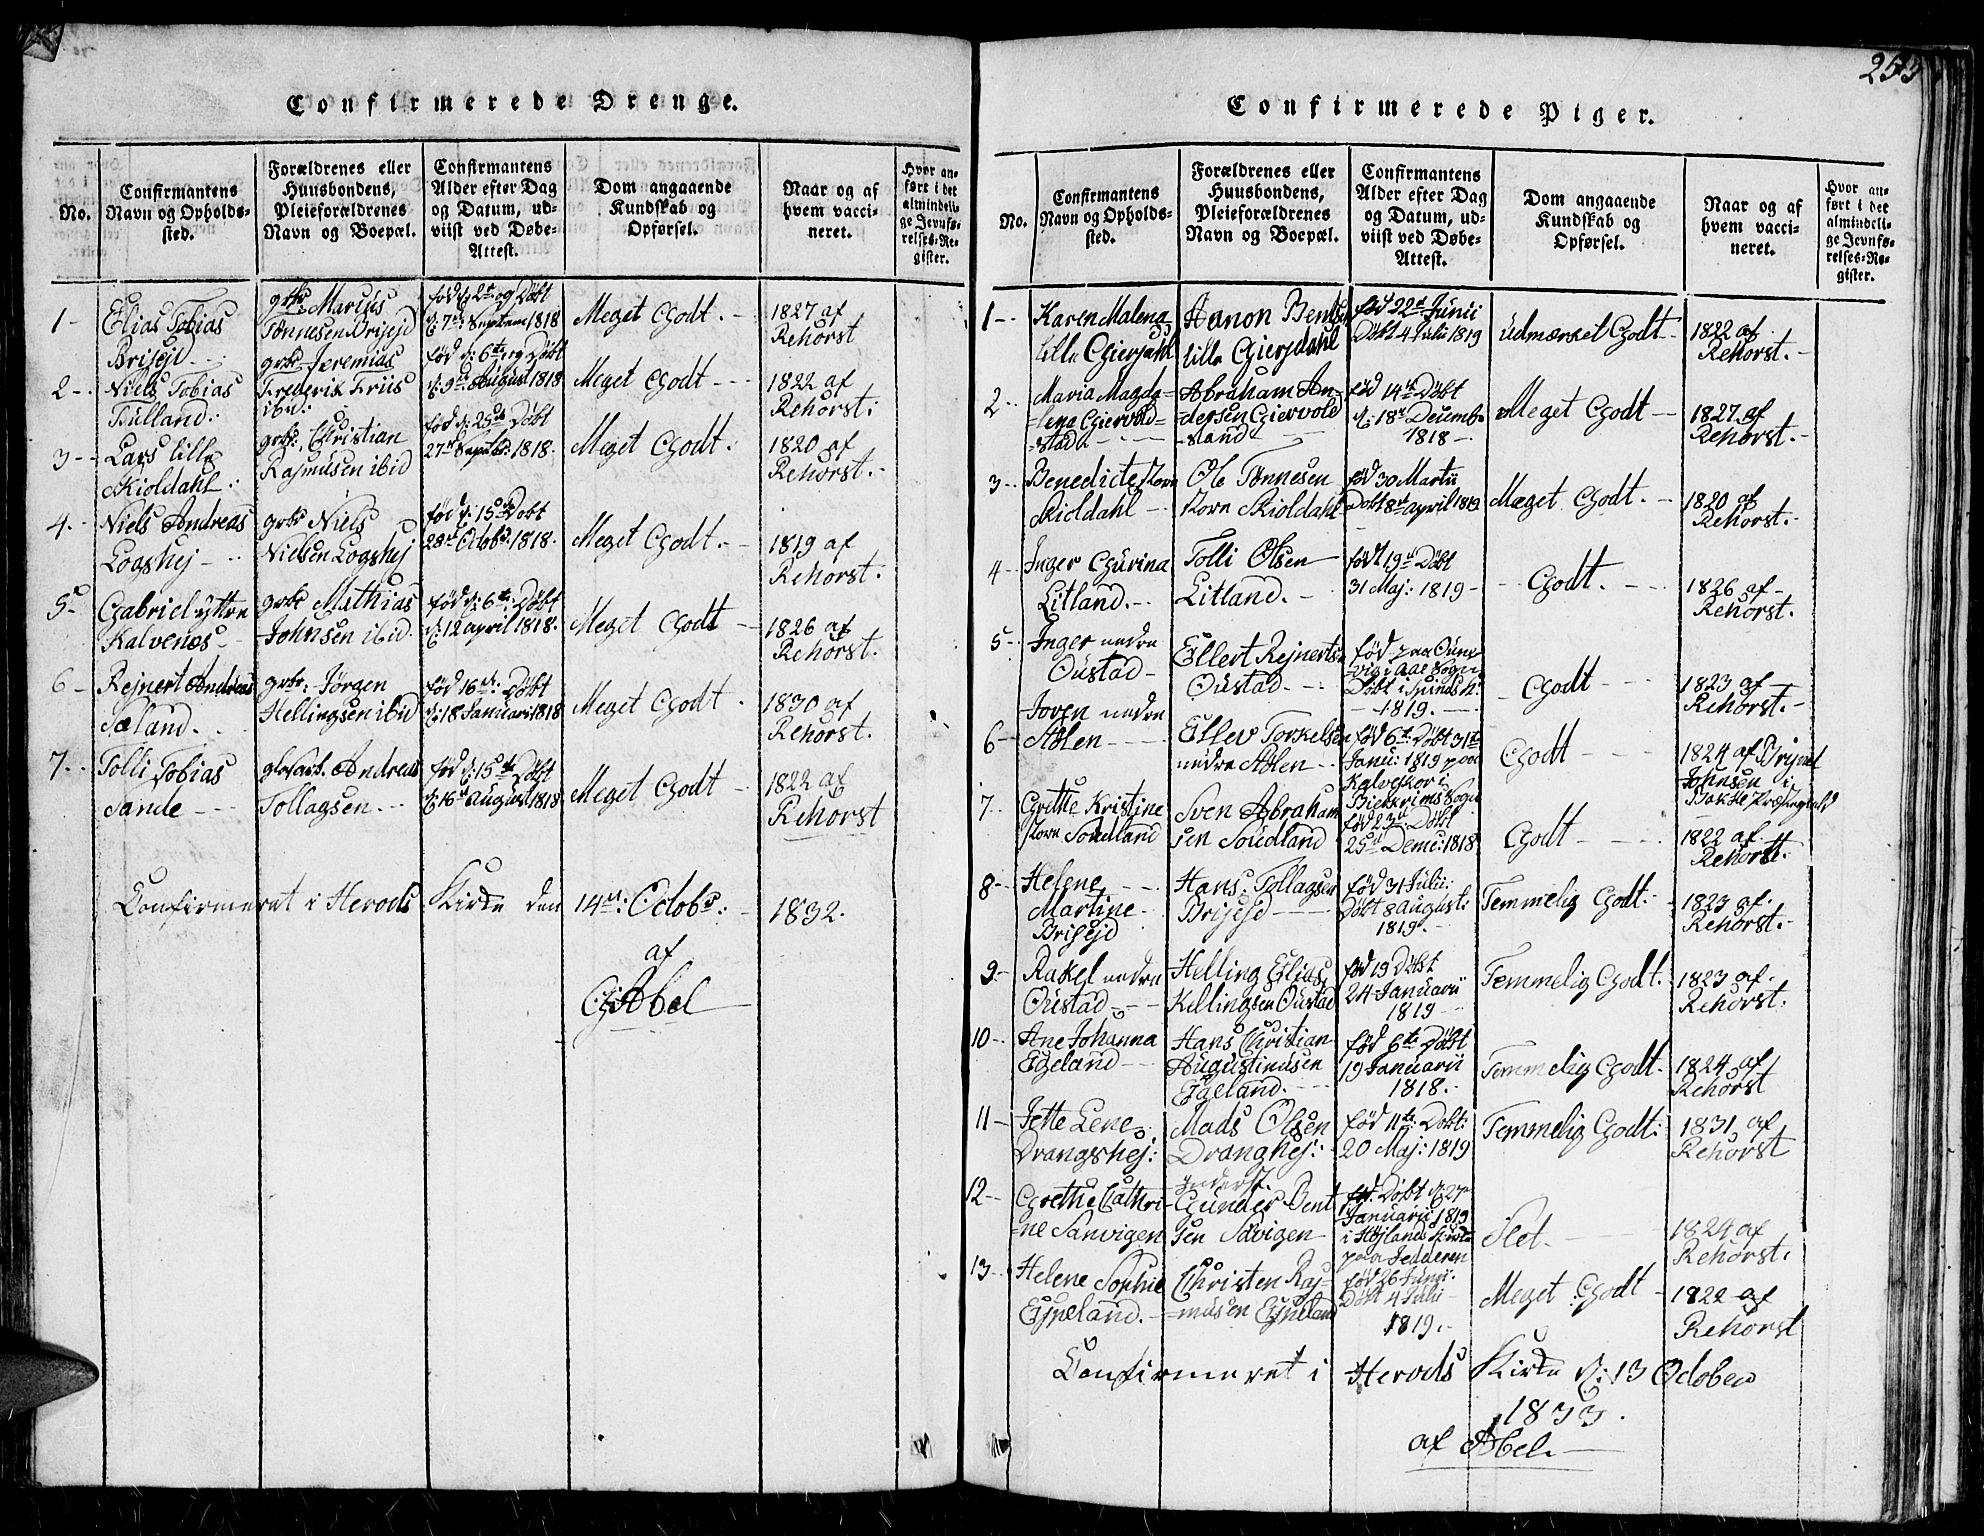 Confirmerede Drenge.
No.
Confirmantens
Navn og Opholds-
sted.
Forældrenes eller
Huusbondens,
Pleieforældrenes
Navn og Boepæl.
Confirmantens
Alder efter Dag
og Datum, ud-
viist ved Døbe-
Attest.
Dom angaaende
Kundskab og
Opførsel.
Naar og af
hvem vacci-
neret.
Hvor an-
ført i det
almindeli-
ge Jevnfø-
relses-Re-
gister.
1-
Elias Tobias
Brisejd
grbr Marius
Tønnesen Brisejd
fød d: 2d og Døbt
d: 7d: Septem 1818
Meget Godt.
1827 af
Rehorst
2-
Niels Tobias
Tulland:
grbr Jeremias
Frederik Friis
ibid:
fød d: 6te og Døbt
d: 9d August 1818
Meget Godt
1822 af
Rehorst:
3-
Lars lille
Skioldahl:
grbr: Christian
Rasmusen ibid
fød d: 25de Døbt
27de Septbr: 1818.
Meget Godt.
1820 af
Rehorst.
4-
Niels Andreas
Logshej
grbr Niels
Nielsen Logshej
fød d: 15de Døbt
28d Octobr: 1818.
Meget Godt.
1819 af
Rehorst.
5-
Gabriel ÿttre
Kalvenes
grbr Mathias
Johnsen ibid.
fød d: 6te: Døbt
d: 12 april 1818.
Meget Godt
1826 af
Rehorst.
6-
Rejnert Andreas
Sæland.
grbr: Jørgen
Hellingsen ibid
fød 16d: Døbt
d: 18 Januari 1818
Meget Godt
1830 af
Rehorst.
7-
Tolli Tobias
Sande
Andreas
Tollagsen
fød d: 15de Døbt
d: 16d August 1818
Meget Godt
1822 af
Rehorst
Confirmeret i Herods Kirke den 14de: Octobr: 1832.
af
G Abel
253
Confirmerede Piger.
No.
Confirmantens
Navn og Opholds-
sted.
Forældrenes eller
Huusbondens,
Pleieforældrenes
Navn og Boepæl.
Confirmantens
Alder efter Dag
og Datum, ud-
viist ved Døbe-
Attest.
Dom angaaende
Kundskab og
Opførsel.
Naar og af
hvem vacci-
neret.
Hvor an-
ført i det
almindeli-
ge Jevnfø-
relses-Re-
gister.
1-
Karen Malena
lille Giersdahl
Aanon Bentsen
lille Giersdahl
fød 22d Junii
Døbt 4 Julii 1819
Udmærket Godt
1822 af
Rehorst.
2-
Maria Magda-
-lena Giervold-
-stad
Abraham An-
dersen Giervold
-stand
fød 14de Døbt
d: 18de Decembr
1818
Meget Godt
1827 af
Rehorst.
3-
Benedicte store
Skioldahl
Ole Tønnesen
store Skioldahl
fød 30 Martii
Døbt 8de april 1819
Meget Godt.
1820 af
Rehorst.
4-
Inger Gurina
Litland.
Tolli Olsen
Litland.
fød 19de Døbt
31 Maj: 1819
Godt.
1826 af
Rehorst.
5-
Inger nedre
Oustad
Ellert Rejnertsen
Oustad
fød paa
vig i Aae Sogn
Døbt i
1819.
Godt
1823 af
Rehorst.
6-
Joren nedre
Aðlen
Ellev Torkelsen
nedre Aðlen
fød 6te: Døbt 31te
Janu: 1819 paa
i
Biekkrims Sogn
Godt
1824 af
Johnsen i
7-
Grethe Kristine
store Soudland
Sven Abraham
sen Soudland
fød 23d: Døbt
25d Decme: 1818
Godt
1822 af
Rehorst.
8-
Helene
Martine
Brisejd
Hans Tollagsen
Brisejd
fød 31 Julii:
Døbt 8 August:
1819.
Temmelig Godt.
1823 af
Rehorst.
9-
Rakel nedre
Oustad
Helling Elias
Kellingsen Oustad
fød 19 Døbt
24 Januarii
1819
Temmelig Godt.
1823 af
Rehorst.
10-
Ane Johanna
Egeland
Hans Christian
Augustinusen
Egeland.
fød 6te Døbt
19 Januarii
1818.
Temmelig Godt.
1824 af
Rehorst
11-
Jette Lene
Drangshej:
Mads Olsen
Dranghej:
fød 11te: Døbt:
20 Maj: 1819
Temmelig Godt:
1831 af
Rehorst
12-
Grethe Cathri-
-ne Sanvigen
Gunder Bent
sen Savigen
fød: Døbt d: 27de
Januarii 1819
i Højlands Kirke
paa Jedderen
Slet.
1824 af
Rehorst.
13-
Helene Sophie
Espeland.
Christen Ras-
-musen Espeland
fød 26 Junii.
Døbt 4 Julii
1819.
Meget Godt
1822 af
Rehorst
Confirmeret i Herods Kirke d: 13 October
1833.
af Abel.